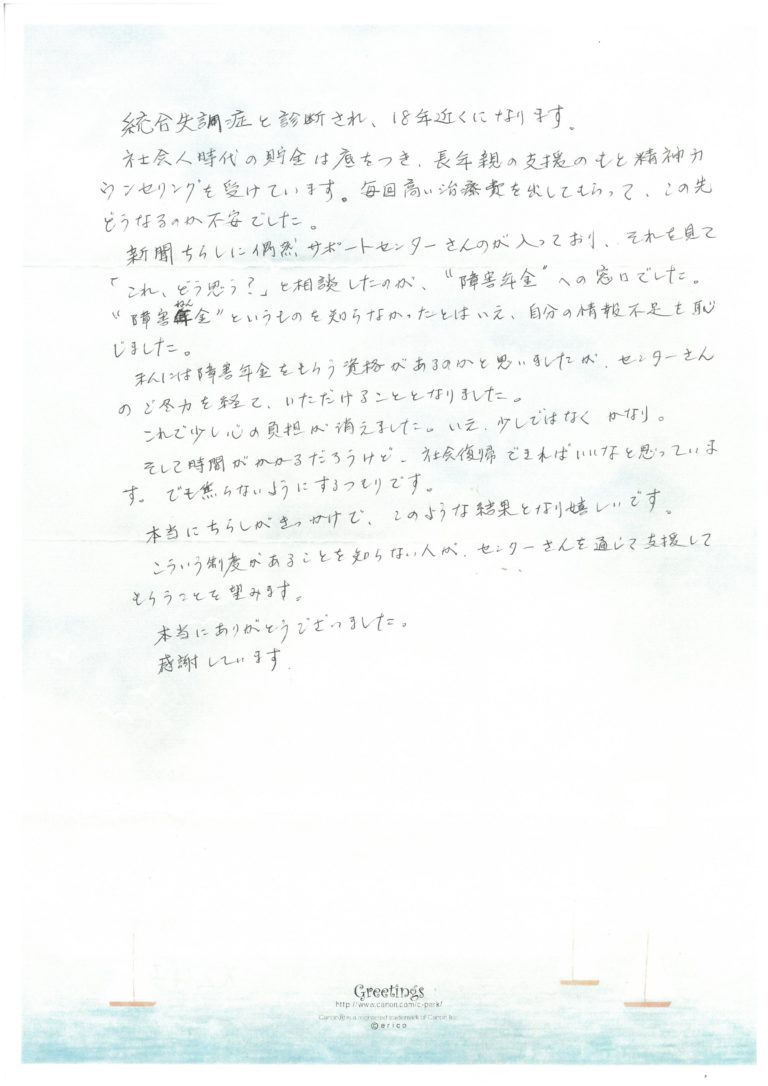 統合失調症と診断され、18年近くになります。
社会人時代の貯金は底をつき、長年親の支援のもと精神カ
ウンセリングを受けています。毎回高い治療費を出してもらって、この先
どうなるのか不安でした。
新聞ちらしに偶然サポートセンターさんのが入っており、それを見て
「これ、どう思う?」と相談したのが、“障害年金”への窓口でした。
“障害年金”というものを知らなかったとはいえ、自分の情報不足を恥
ねん
じました。
私には障害年金をもらう資格があるのかと思いましたが、センターさん
のご尽力を経て、いただけることとなりました。
これで少し心の負担が消えました。いえ、少しではなくかなり。
そして時間がかかるだろうけど、社会復帰できればいいなと思っていま
す。でも焦らないようにするつもりです。
本当にちらしがきっかけで、このような結果となり嬉しいです。
こういう制度があることを知らない人が、センターさんを通じて支援して
もらうことを望みます。
本当にありがとうございました。
感謝しています。
Greetings
http://www.canon.com/c-park/
Canon®is a registered trademark of Canon Inc.
©erico